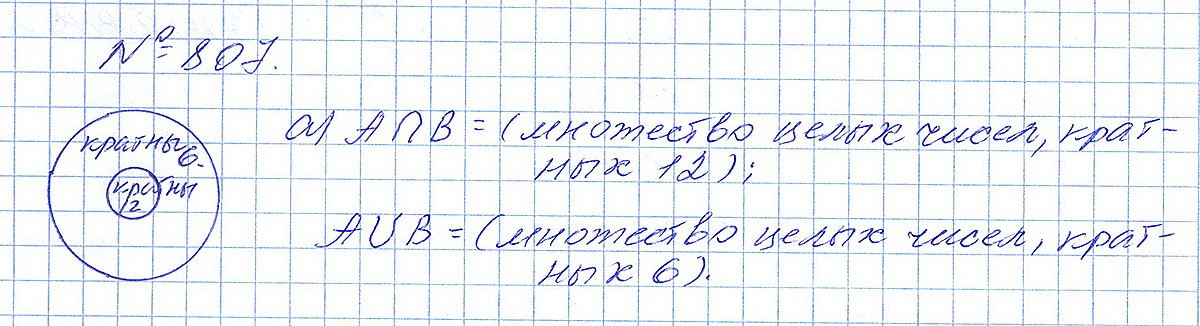 № 807.
кратны 6.
кратны
12
а) A∩B = (множество целых чисел, крат-
ных 12);
A∪B = (множество целых чисел, крат-
ных 6).